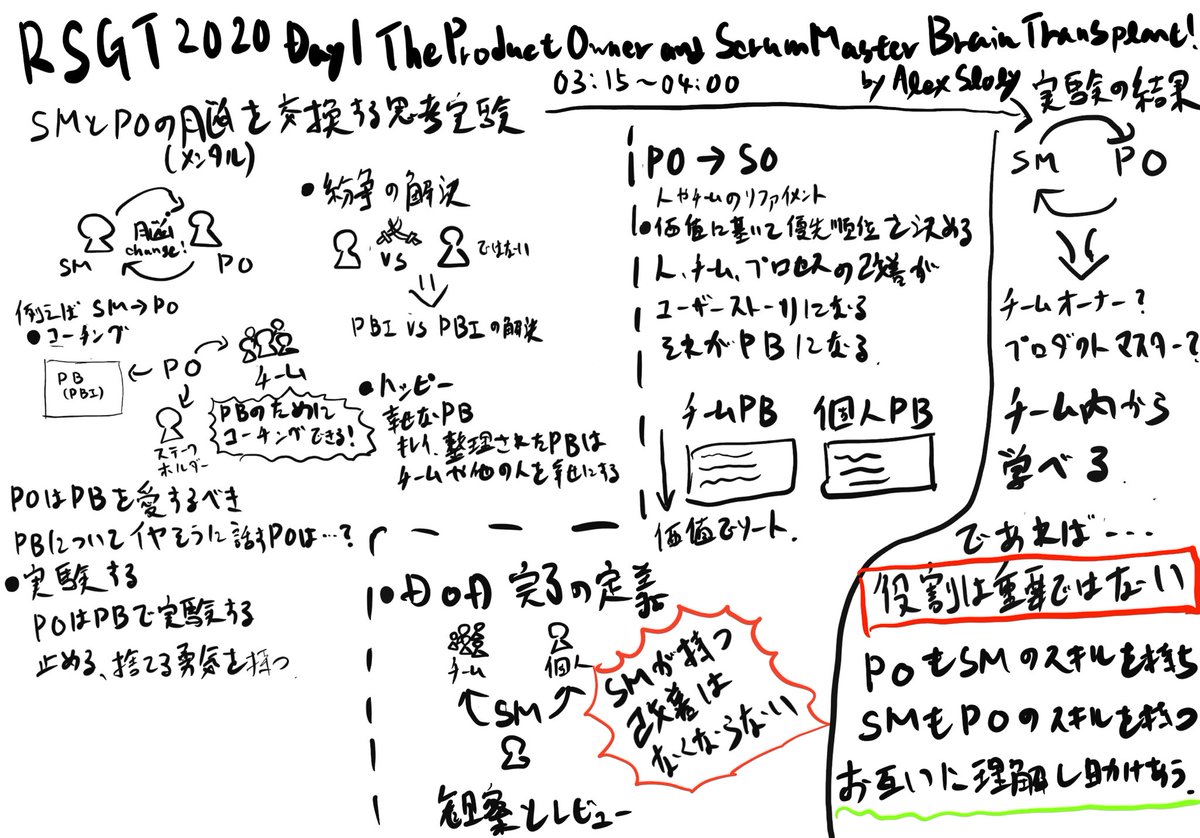 RSGT2020 Day1 The Product Owner and Scrum Master Brain Transplant!
03:15〜04:00
by Alex Sloley
SMとPOの脳を交換する思考実験
(メンタル)
脳 change!
SM
PO
例えば SM→PO
●コーチング
PB
(PBI)
PO
チーム
ステークホルダー
PBのために
コーチングできる!
POはPBを愛するべき
PBについてイヤそうに話すPOは…?
●実験する
POはPBで実験する
止める、捨てる勇気を持つ
●紛争の解決
VS
ではない
PBI vs PBIの解決
●ハッピー
幸せなPB
キレイ、整理されたPBは
チームや他の人を幸せにする
PO→SO
人やチームのリファイメント
●価値に基いて優先順位を決める
人、チーム、プロセスの改善が
ユーザーストーリになる
それがPBになる
チームPB
個人PB
価値でソート.
●DoD 完了の定義
チーム
個人
SM
観察とレビュー
SMが持つ
改善は
なくならない
実験の結果
SM
PO
チームオーナー?
プロダクトマスター?
チーム内から
学べる
であれば・・・
役割は重要ではない
POもSMのスキルを持ち
SMもPOのスキルを持つ
お互いに理解し助けあう.